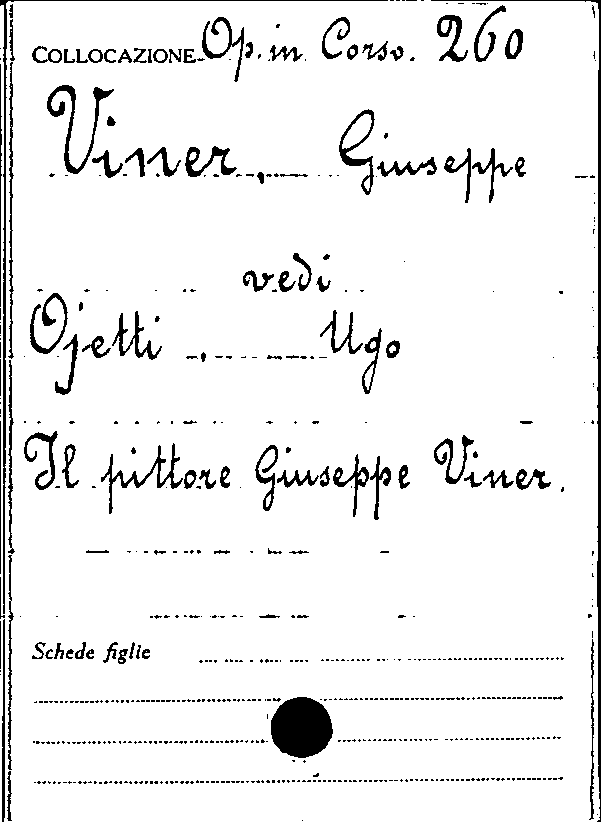 COLLOCAZIONE Op. in Corso. 260
Viner, Giuseppe
vedi
Ojetti, Ugo
Il pittore Giuseppe Viner.
Schede figlie